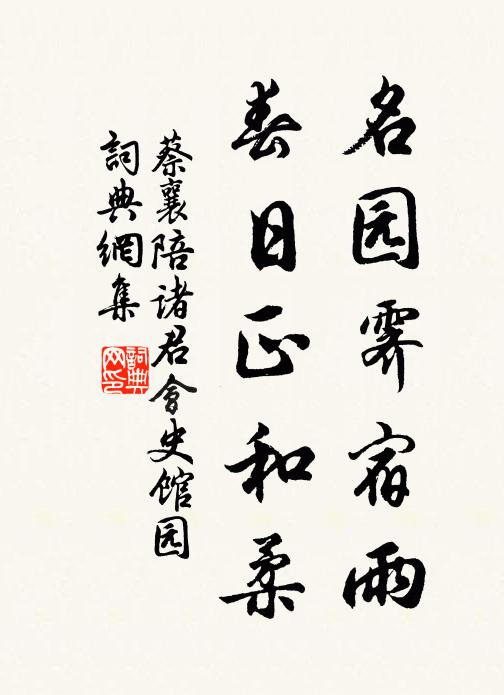 名园霁宿雨
春日正和柔
蔡襄陪诸君会史馆园
詞典網集
詞典网印